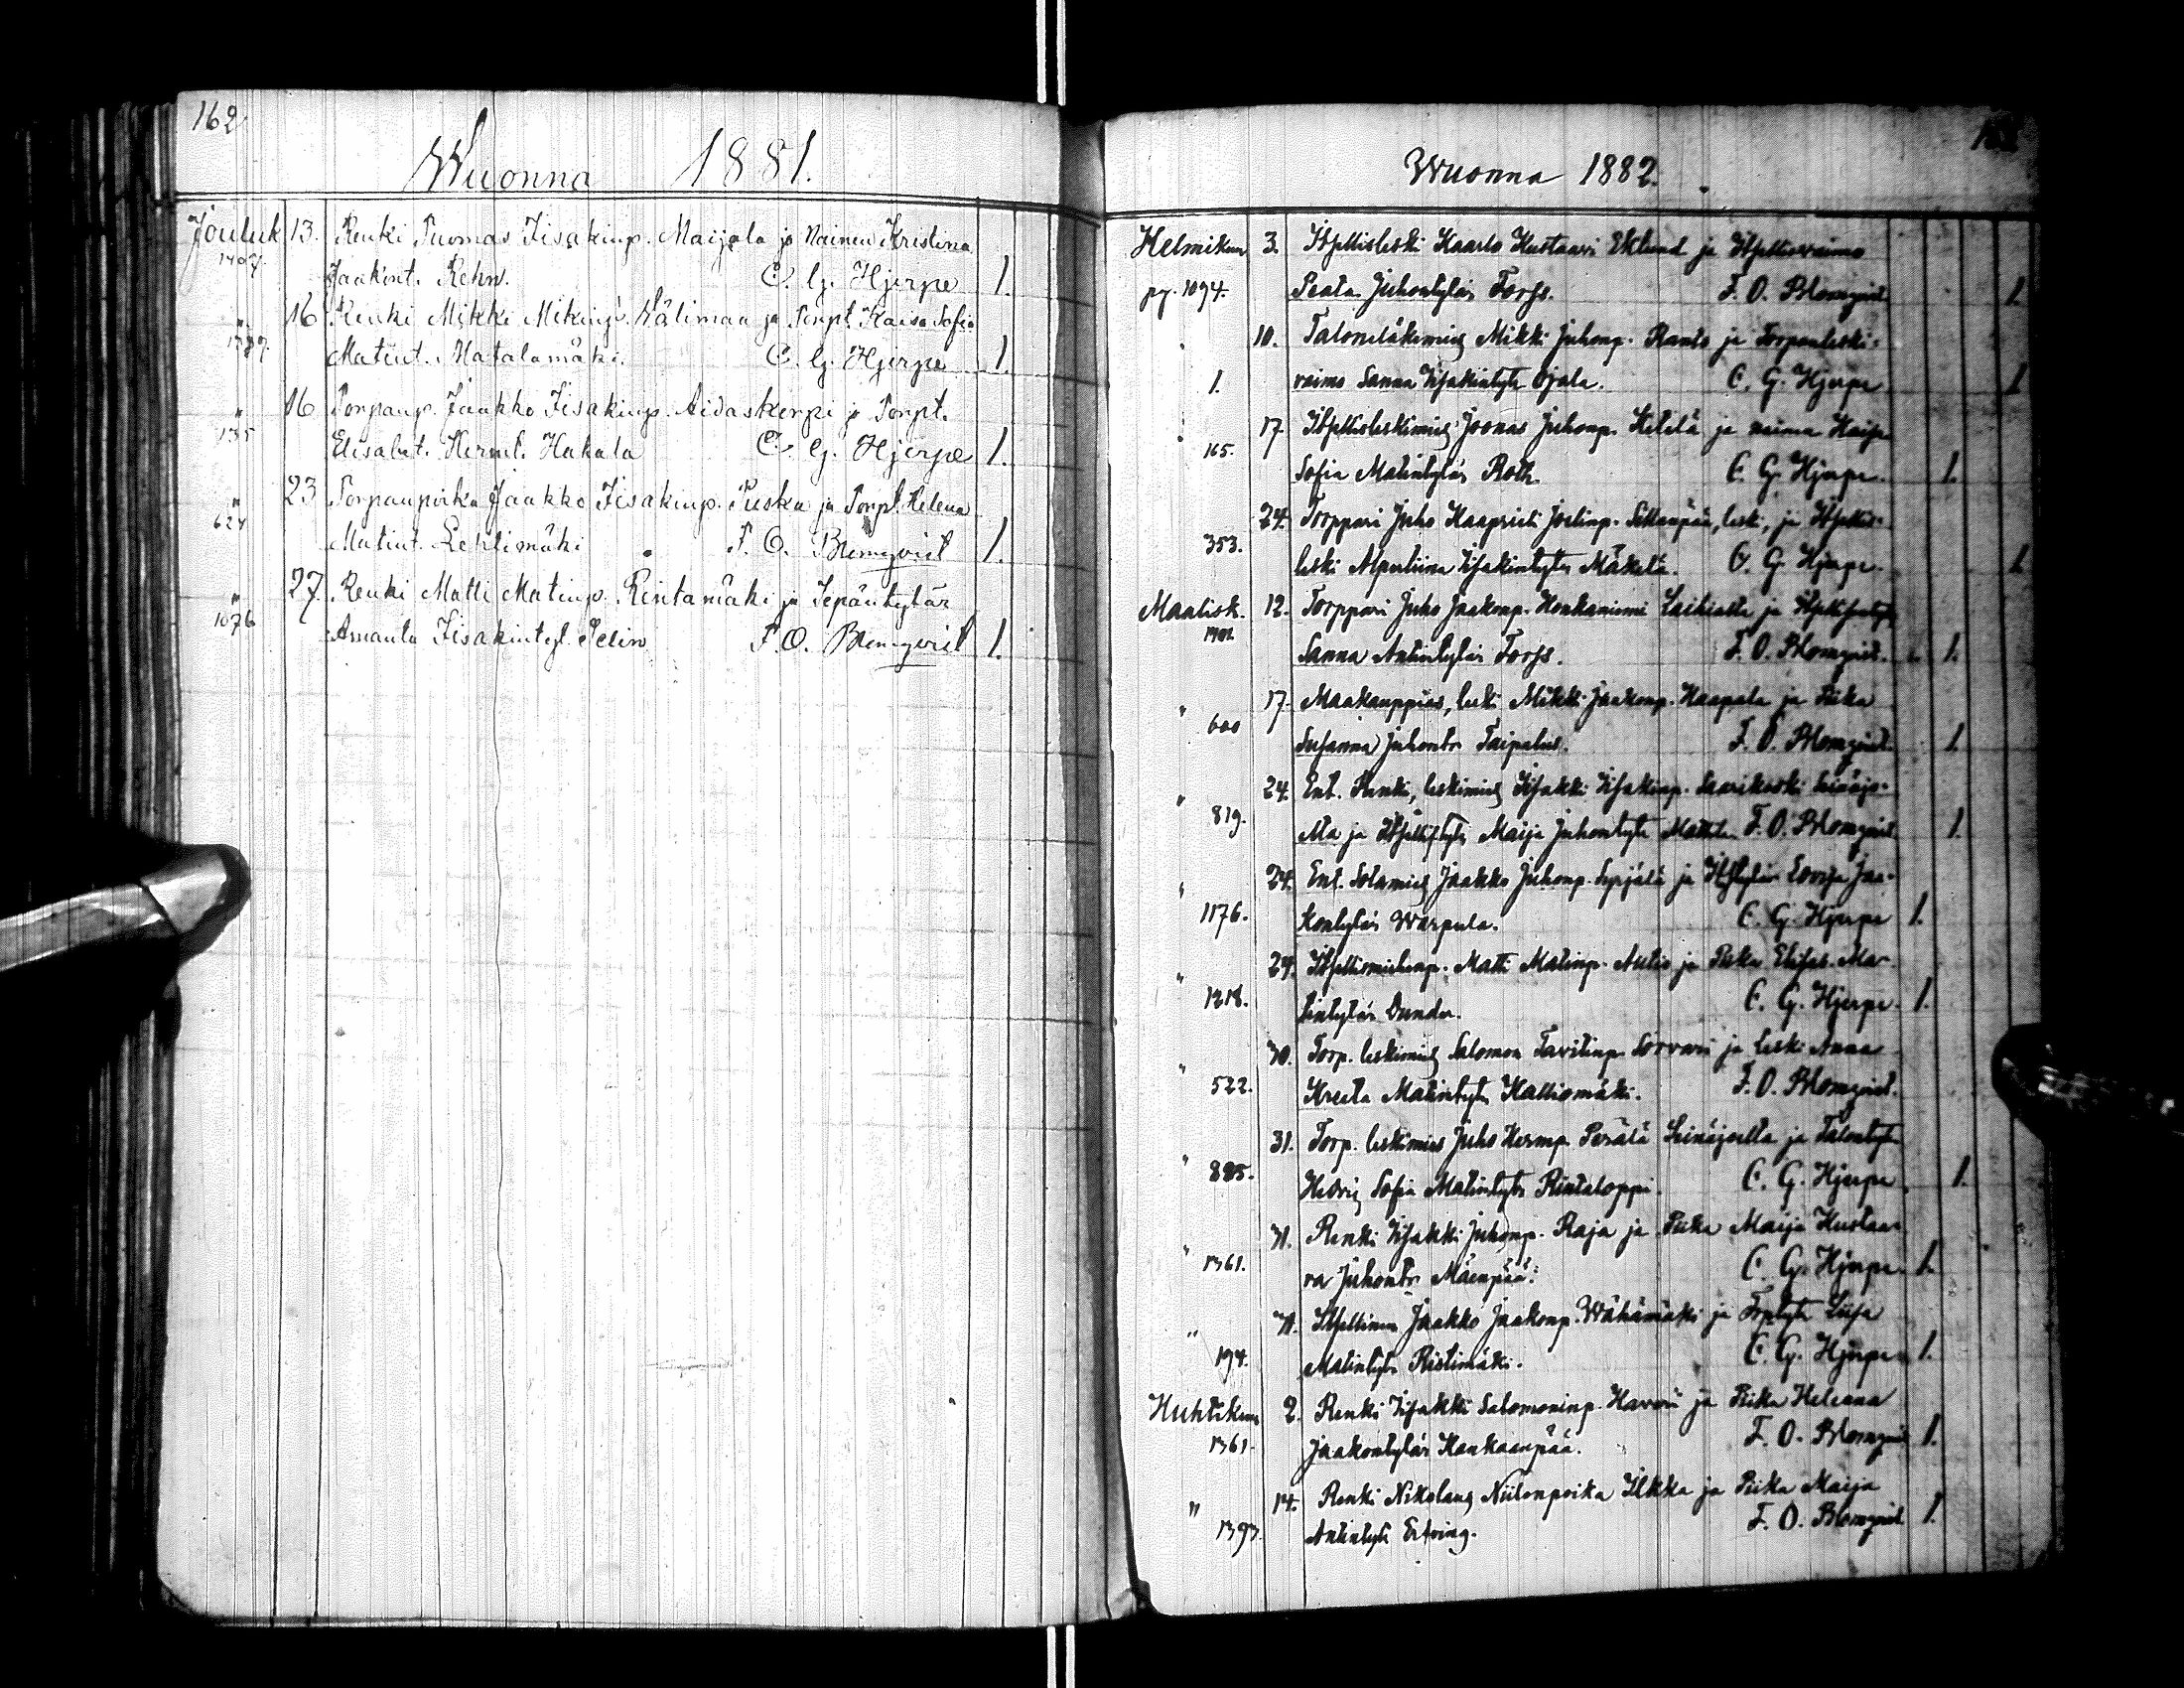 162
Wuonna 1881.
Jouluk 13. Renki Tuomas Iisakinp. Maijala ja Nainen Kristina
1407. Jaakint. Rehn. C. G. Hjerpe 1.
" 16 Renki Mikki Mikinp. Välimaa ja Torpt. Kaisa Sofia
Matint. Matalamäki. C. G. Hjerpe 1.
" 16 Torpanp. Jaakko Iisakinp. Aidaskerpi ja Torpt.
135 Elisabet. Hermt. Hakala C. G. Hjerpe 1.
" 23 Torpanpoika Jaakko Iisakinp. Puska ja Torpt. Helena
624 Matint. Lehtimäki F. O. Blomqvist 1.
" 27. Renki Matti Matinp. Rintamäki ja Sepäntytär
1076 Amanta Iisakintyt. Pelin F. O. Blomqvist 1.
Wuonna 1882.
Helmikuu 3. Itsellisleski Kaarlo Kustaari Eklund ja Itsellisvaimo
pg. 1094. Peata Juhontytär Forss. F. O. Blomqvist 1
10. Talonleskimies Mikki Juhonp. Ranto ja Torpanleski-
1. vaimo Sanna Iisakintytr Ojala. C. G. Hjerpe 1
17. Itsellisleskimies Joonas Juhonp. Ketelä ja naima Kaisa
165. Sofia Matintytär Roth. C. G. Hjerpe. 1.
24. Torppari Juho Kaaprieli Joelinp. Sillanpää, leski, ja Itsellis-
353. leski Alpertiina Iisakintytr Mäkelä. C. G. Hjerpe. 1
Maalisk. 12. Torppari Juho Jaakonp. Honkaniemi Laihialta ja
Sanna Antintytär Forss. F. O. Blomqvist. 1.
" 17. Maakauppias, leski Mikki Jaakonp. Haapala ja Piika
600 Susanna Juhontr Taipalus. F. O. Blomqvist. 1.
" 24. Ent. Renki, leskimies Iisakki Iisakinp. Saarikoski Seinäjo-
819. elta ja Itsellistytr Maija Juhontytr F. O. Blomqvist. 1.
" 24. Ent. Sotamies Jaakko Juhonp. Syrjälä ja Itstytär Lovisa Jaa-
1176. kontytär Warpula. C. G. Hjerpe 1.
" 24. Itsellismiehenp. Matti Matinp. Autio ja Piika Elisas. Ma-
1218. tintytär Dunder. C. G. Hjerpe. 1.
" 30. Torp. leskimies Salomon Tavitinp. Sorvari ja leski Anna
522. Kreeta Matintytr Kalliomäki. F. O. Blomqvist.
" 31. Torp. leskimies Juho Hermp. Perälä Seinäjoelta ja Talontytr
885. Hedvig Sofia Matintytr Rintaloppi. C. G. Hjerpe. 1.
" 31. Renki Iisakki Juhonp. Raja ja Piika Maija Kustaa-
1361. va Juhontr Mäenpää. C. G. Hjerpe. 1.
" 31. Itsellinen Jaakko Jaakonp. Wähämäki ja Torptytr Liisa
194. Matintytr Ristimäki. C. G. Hjerpe. 1.
Huhtikuu 2. Renki Iisakki Salomoninp. Haveri ja Piika Heleena
1361. Jaakontytär Kankaanpää. F. O. Blomqvist 1.
" 14. Renki Nikolaus Niilonpoika Ilkka ja Piika Maija
1393. Antintytr Erfving. F. O. Blomqvist 1.